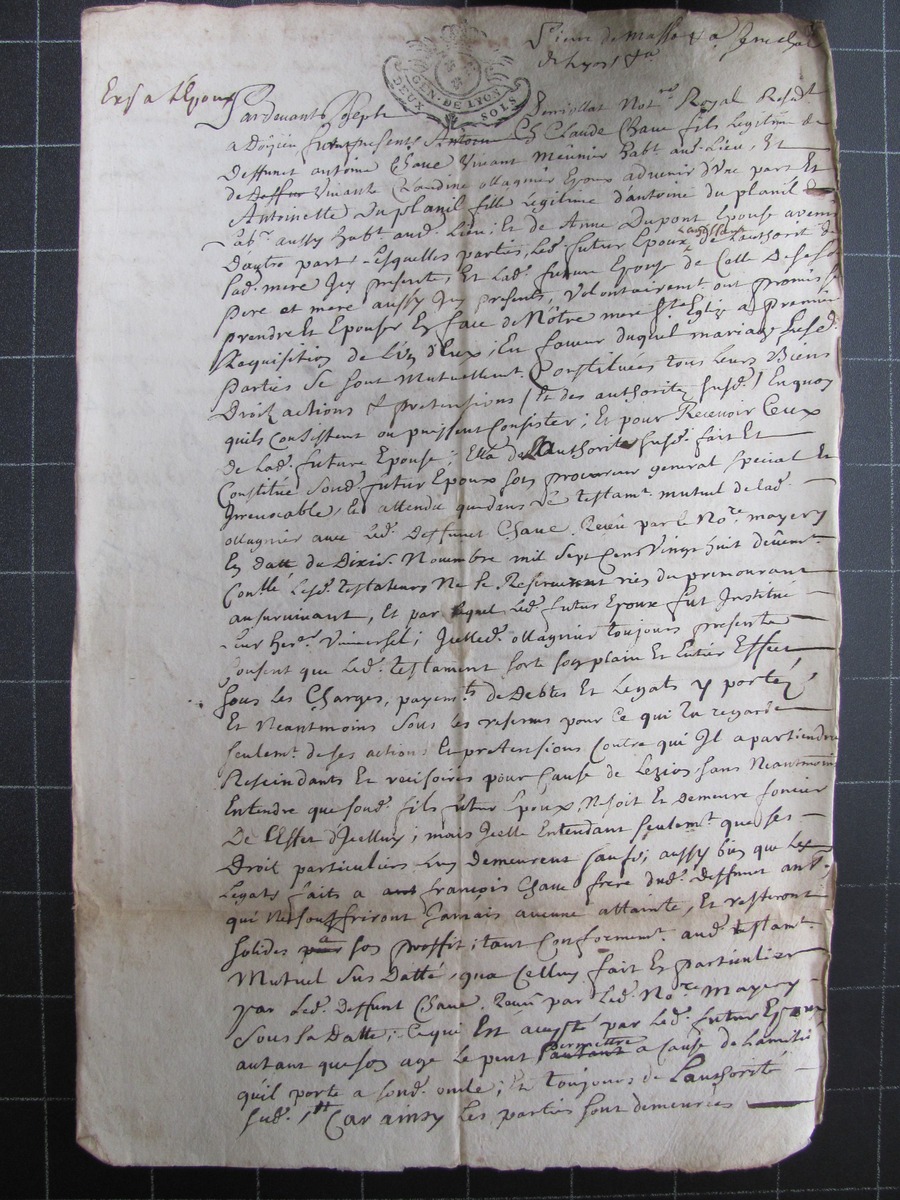 Sieur de Masso
de Lyon
DEUX GEN. DE LYON SOLS
Pardevant Joseph Not.re Royal Resid.t
a presents Claude Chaue fils Legitime de
Deffunct antoine Chaue Vivant Meunier hab.t aud. Lieu, Et
de Vivante Claudine Magnier Epoux advenir d'Vne part Et
Antoinette Duplanil fille Legitime d'antoine du planil
Lab.r aussy hab.t aud. Lieu, Et de Anne Dupont Epouse avenir
D'autre part Lesquelles parties, Led. futur Epoux de Lauthorité de
Lad. mere Icy presente, Et Lad. future Epouse de Celle De ses
pere et mere aussy Icy presents, Volontairement ont promis se
prendre Et Epouser En face de Nôtre mere S.te Eglise a premiere
Requisition de L'vn d'Eux; En faveur duquel mariage Lesd.
parties se sont Mutuellem.t Constituées tous Leurs Biens
Droits actions & pretensions (Et des authorités susd.) En quoy
quils Consistent ou puissent Consister; Et pour Recevoir Ceux
de Lad. future Epouse; Elle de Lauthorité susd. fait Et
Constitue sond. futur Epoux son procureur general special Et
Irrevocable, Et attendu que dans Le testam.t mutuel de lad.
Magnier avec Led. Deffunct Chaue Receu par le No.re mayery
En datte du Dixie. Novembre mil sept Cens Vingt huit
Lesd. testateurs Ne se Reserverent rien du premourant
au survivant, Et par Lequel Led. futur Epoux fut Institué
Leur Her.er Vniversel; Icelle d. Magnier toujours presente
Consent que Led. testament sorte son plain Et Entier Effect
sous Les Charges, payem.ts de Debtes Et Legats y portéz
Et Neantmoins sous les reserves pour Ce qui La regarde
seulem.t de ses actions Et pretensions Contre qui Il apartiendra
Rescindants Et recisoires pour Cause de Lezion sans Neantmoins
Entendre que sond. fils futur Epoux Ne soit Et Demeure foncier
De L'Effet d'Icelluy; mais Icelle Entendant seulem.t que ses
Droit particuliers Luy demeurent saufs; aussy bien que Les
Legats faits a françois Chaue frere dud. deffunct ant.
qui Ne souffriront Jamais aucune attainte, Et resteront
solides a son proffit; tant Conformem.t aud. testam.t
Mutuel Sus Datté, qua Celluy fait En particulier
par Led. Deffunt Chaue Receu par Led. No.re Mayery
sous sa Datte; Ce qui Est accepté par Led. futur Epoux
autant que son age Le peut permettre a Cause de Lamitié
qu'il porte a sond. oncle; Et toujours de Lauthorité
susd. Car ainsy Les parties sont demeurées